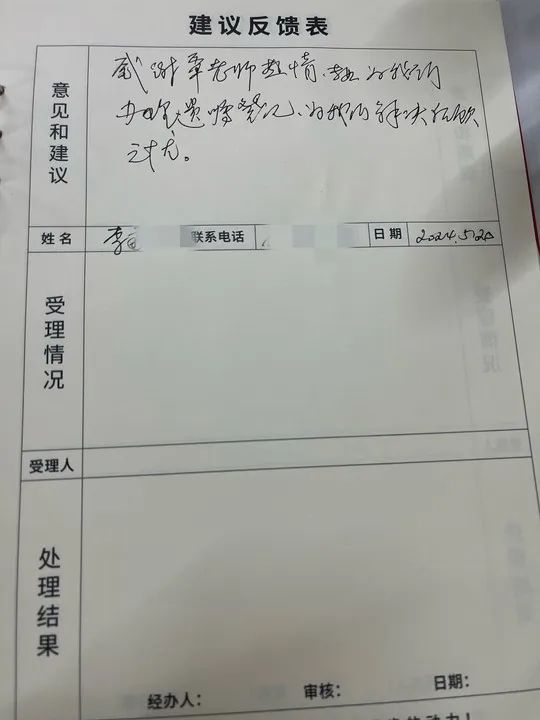 建议反馈表
意见和建议
感谢章老师热情、为我们
办理遗嘱登记、为我们解决后顾
之忧。
姓名 李 联系电话 日期 2024.5.20
受理情况
受理人
处理结果
经办人： 审核： 日期：
的动力！